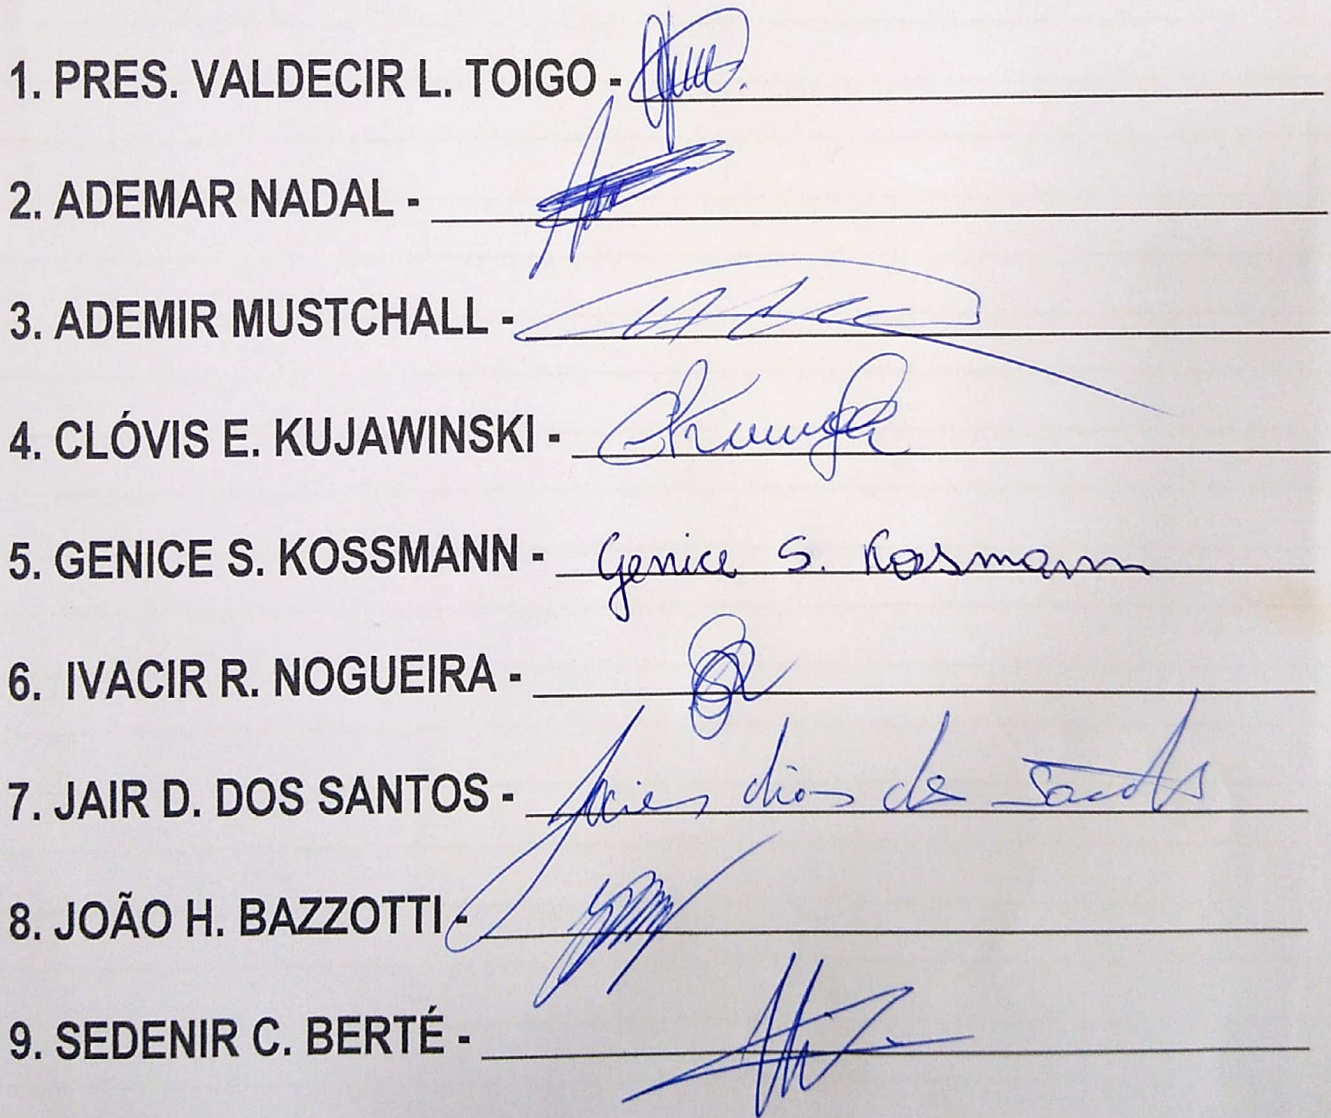 1. PRES. VALDECIR L. TOIGO -
2. ADEMAR NADAL -
3. ADEMIR MUSTCHALL -
4. CLÓVIS E. KUJAWINSKI -
5. GENICE S. KOSSMANN - Genice S. Kossmann
6. IVACIR R. NOGUEIRA -
7. JAIR D. DOS SANTOS - Jair dias de Santos
8. JOÃO H. BAZZOTTI -
9. SEDENIR C. BERTÉ -